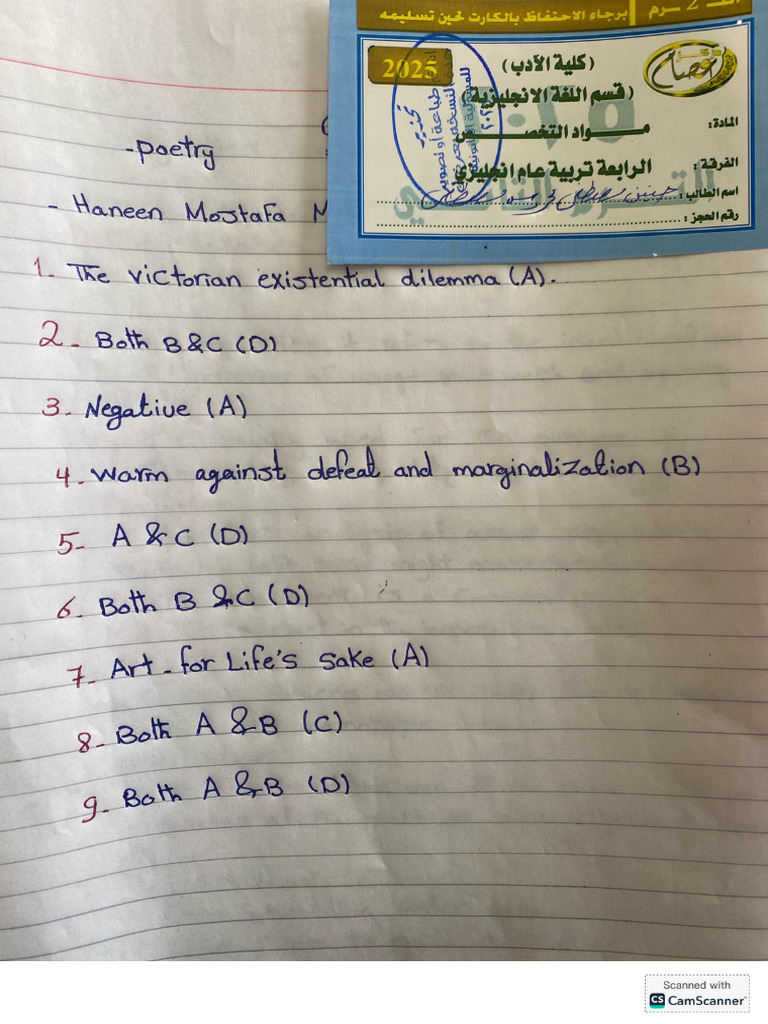 2
برجاء الاحتفاظ بالكارت لحين تسليمه
2025
(كلية الآدب)
(قسم اللغة الانجليزية)
المادة:
مواد التخصص
الفرقة:
الرابعة تربية عام انجليزي
اسم الطالب:
رقم الحجز:
عصام
تحذير
-poetry
- Haneen Mostafa
1- The victorian existential dilemma (A).
2- Both B & C (D)
3- Negative (A)
4- warm against defeat and marginalization (B)
5- A & C (D)
6- Both B & C (D)
7- Art-for Life's sake (A)
8- Both A & B (C)
9- Both A & B (D)
Scanned with
CS CamScanner